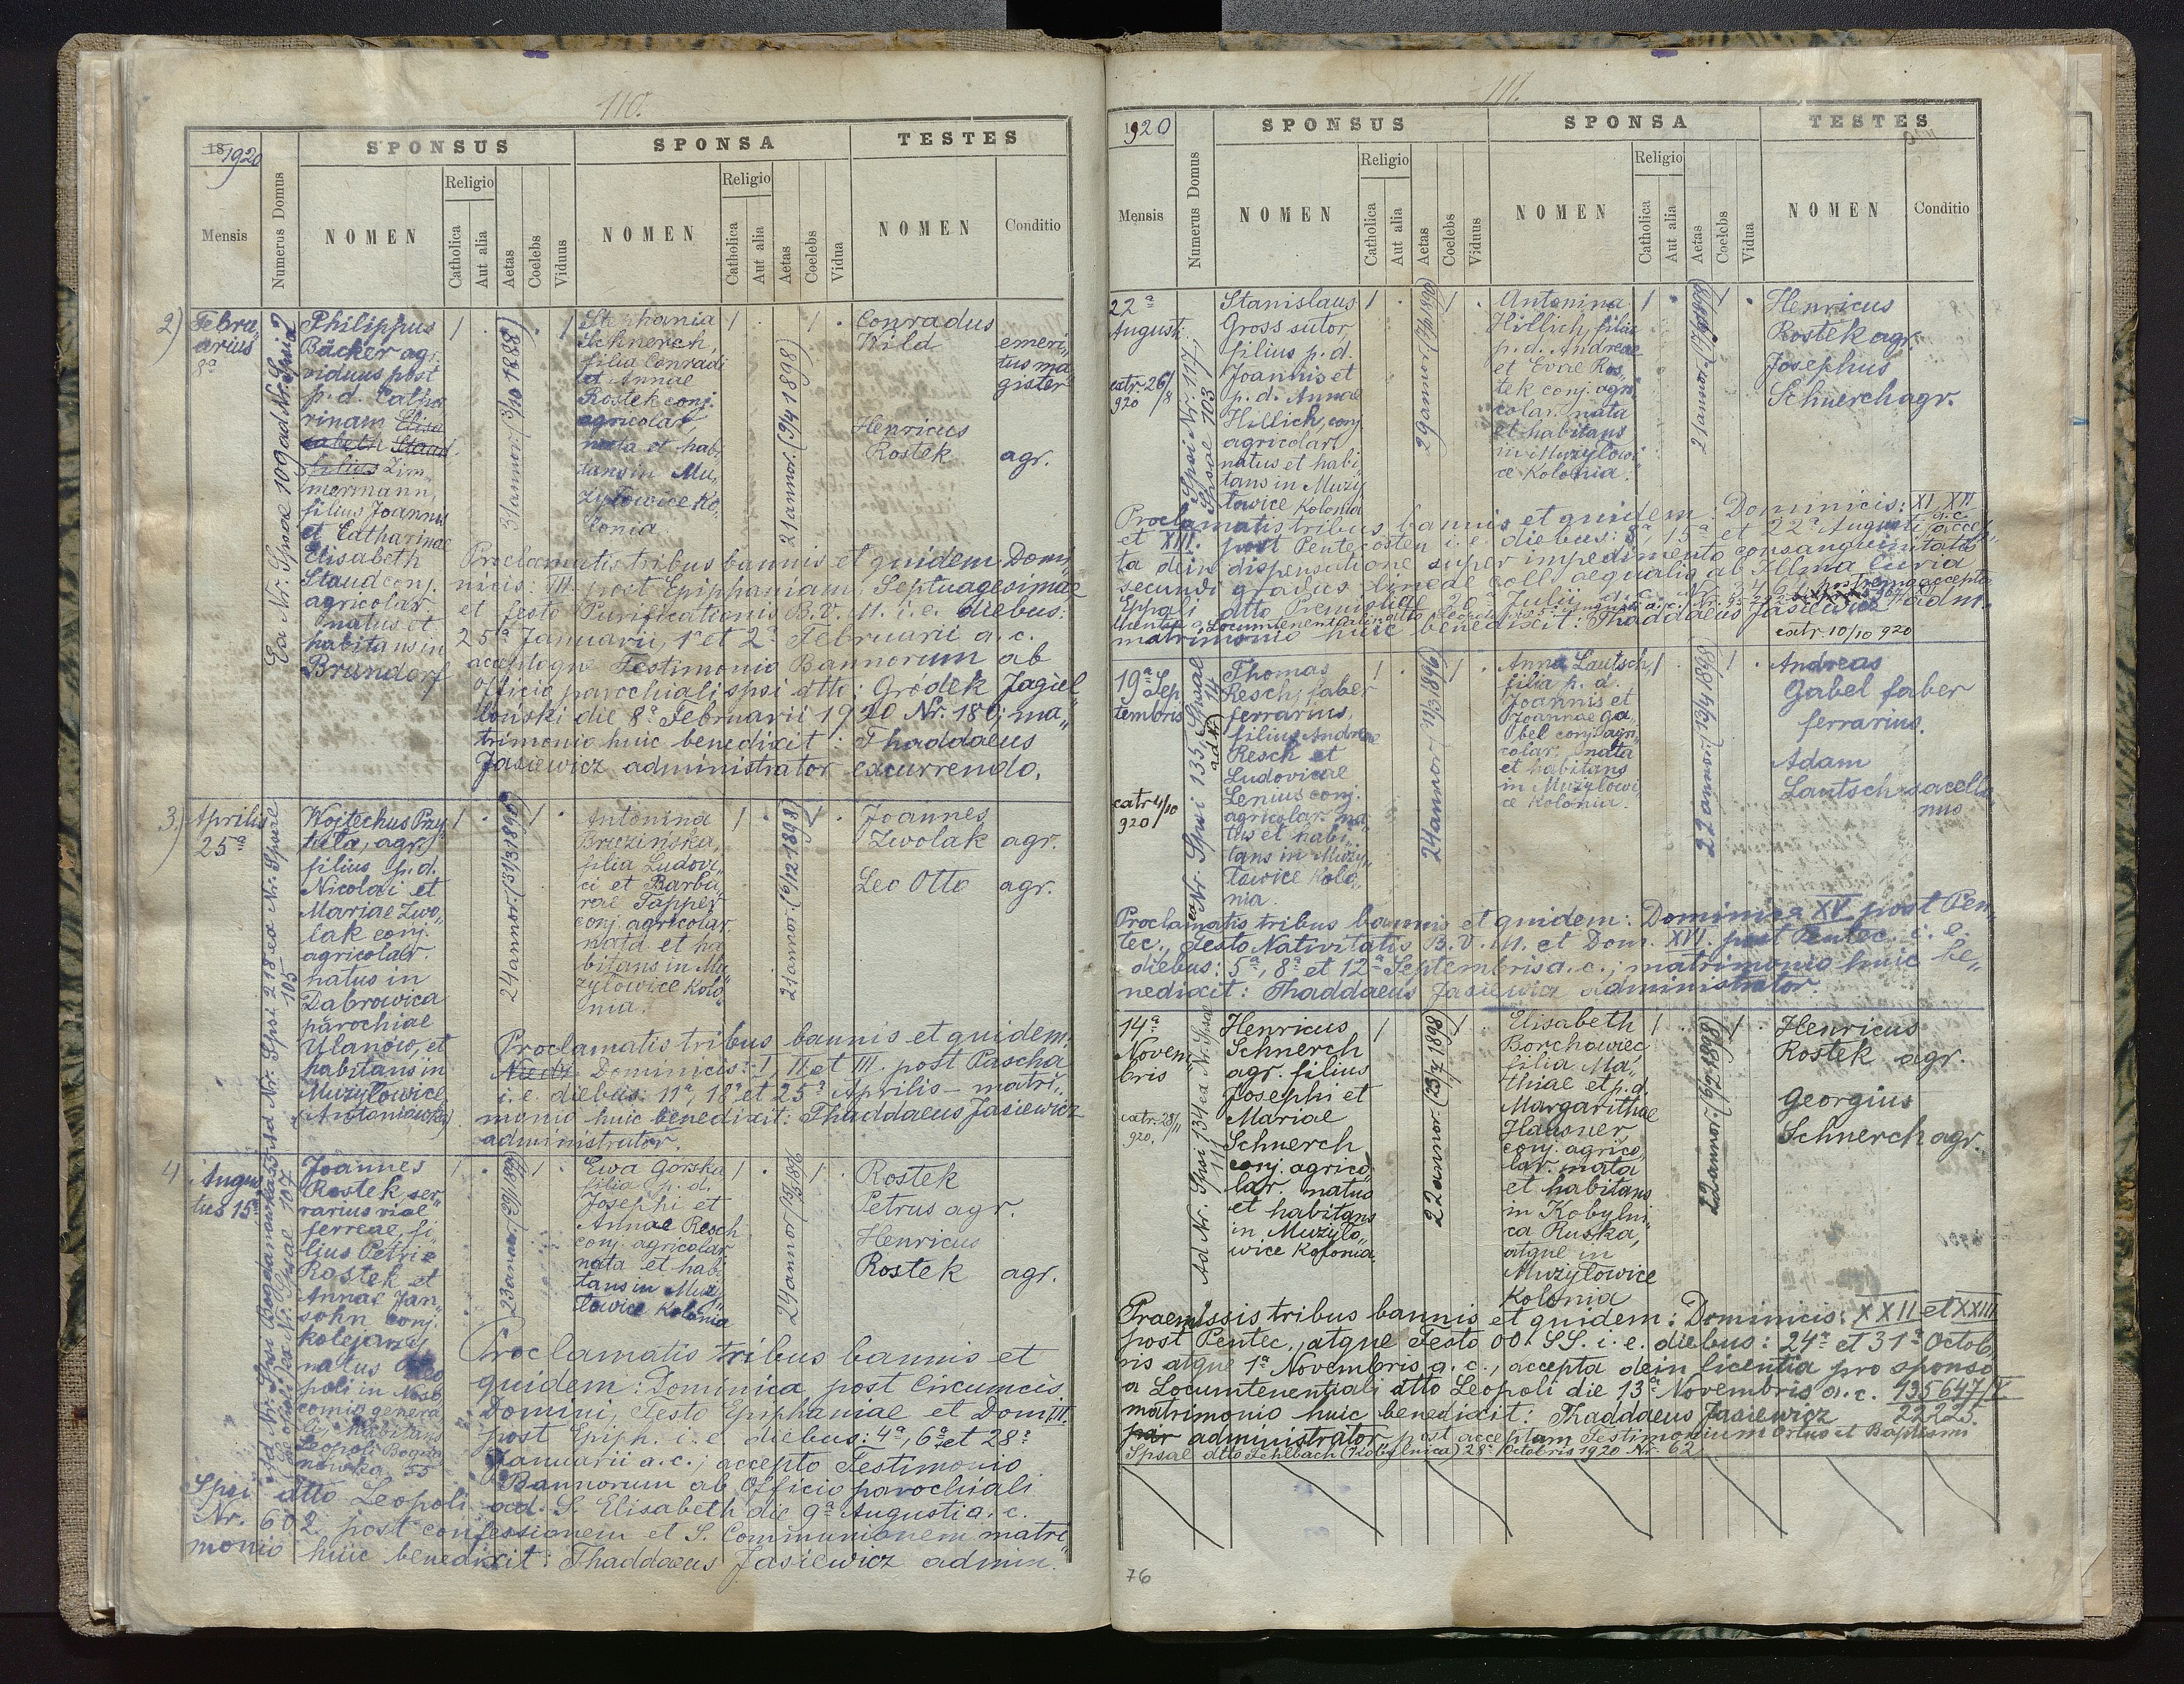 110.
18 1920
SPONSUS
SPONSA
TESTES
Mensis
Numerus Domus
NOMEN
Religio
Catholica
Aut alia
Aetas
Coelebs
Viduus
NOMEN
Religio
Catholica
Aut alia
Aetas
Coelebs
Vidua
NOMEN
Conditio
2) Febru„
arius
8ª
Ex Nr. Spsae 109 ad Nr. Spsi ?
Philippus
Bäcker agr.
viduus post
p. d. Catha
rinam Elisa
Zim„
mermann,
filius Joannis
et Catharinae
Elisabeth
Staud conj.
agricolar.
natus et
habitans in
Brundorf
1 ·
31 annor. (3/10 1888)
· 1
Stephania
Schnerch,
filia Conradi
et Annae
Rostek conj.
agricolar.
nata et habi
tans in Mu„
żyłowice Ko„
lonia
1 ·
21 annor. (9/4 1898)
1 ·
Conradus
Wild
emeri„
tus ma
gister
Henricus
Rostek agr.
Proclamatis tribus bannis et quidem Domi„
nicis: III post Epiphaniam, Septuagesimae
et festo Purificationis B. V. M. i. e. diebus:
25ª Januarii, 1ª et 2ª Februarii a. c.
acceptoque Testimonio Bannorum ab
Officio parochiali spsi dtto: Gródek Jagiel„
loński die 8ª Februarii 1920 Nr. 180; ma„
trimonio huic benedixit: Thaddaeus
Jasiewicz administrator excurrendo.
3.) Aprilis
25ª
Ad Nr. Spsi 218 ex Nr. Spsae
105
Wojtechus Przy
tuła, agr.
filius p. d.
Nicolai et
Mariae Zwo„
lak conj.
agricolar.
natus in
Dąbrowica
parochiae
Ulanów, et
habitans in
Mużyłowice
(Antoniówka)
1 ·
24 annor. (31/3 1896)
1 ·
Antonina
Bruzińska,
filia Ludovi„
ci et Barba„
rae Tapper
conj. agricolar.
nata et ha
bitans in Mu
żyłowice Kolo„
nia.
1 ·
21 annor. (6/12 1898)
1 ·
Joannes
Zwolak agr.
Leo Otto agr.
Proclamatis tribus bannis et quidem:
Dominicis: I, II et III. post Pascha
i. e. diebus: 11ª, 18ª et 25ª Aprilis – matri„
monio huic benedixit: Thaddaeus Jasiewicz
administrator.
4 Augus
tus 15ª
Joannes
Rostek, ser„
rarius viae
ferreae, fi„
lius Petri
Rostek et
Annae Jan„
sohn conj.
natus Leo
poli in Noso
comio genera
li, habitans
Leopoli Bogda
nówka, 55
1 ·
1 ·
Ewa Gorska
filia p. d.
Josephi et
Annae Resch
conj. agricolar
nata et habi
tans in Muży
łowice Kolonia
1 ·
1 ·
Rostek
Petrus agr.
Henricus
Rostek agr.
Proclamatis tribus bannis et
quidem: Dominica post Circumcis.
Domini, Festo Epiphaniae et Dom. III.
post Epiph. i. e. diebus: 4ª, 6ª et 28ª
Januarii a. c.; accepto Testimonio
Bannorum ab Officio parochiali
Spsi dtto Leopoli ad. S. Elisabeth die 9ª Augusti a. c.
Nr. 602 post confessionem et S. Communionem matri„
monio huic benedixit: Thaddaeus Jasiewicz admin.
111.
1920
SPONSUS
SPONSA
TESTES
Mensis
Numerus Domus
NOMEN
Religio
Catholica
Aut alia
Aetas
Coelebs
Viduus
NOMEN
Religio
Catholica
Aut alia
Aetas
Coelebs
Vidua
NOMEN
Conditio
22ª
Augusti
catr 26/8
920
Spsi Nr. 117,
Spsae 103
Stanislaus
Gross sutor,
filius p. d.
Joannis et
p. d. Annae
Hillich, conj
agricolar
natus et habi„
tans in Muży
łowice Kolonia
1 ·
1 ·
Antonina
Hillich, filia
p. d. Andreae
et Evae Ros„
tek conj. agri
colar. nata
et habitans
in Mużyłowi„
ce Kolonia.
1 ·
1 ·
Henricus
Rostek agr.
Josephus
Schnerch agr.
Proclamatis tribus bannis et quidem: Dominicis: XI, XII
et XIII. post Pentecosten i. e. diebus: 8ª, 15ª et 22ª Augusti a. c. accep„
ta dein dispensatione super impedimento consanguinitatis
secundi gradus lineae coll. aequalis ab Illma Curia
matrimonio huic benedixit: Thaddaeus Jasiewicz adm.
catr. 10/10 920
19ª Sep
tembris
catr 4/10
920
Nr. Spsi 135, Spsae
14
Thomas
Resch, faber
ferrarius,
filius Andreae
Resch et
Ludovicae
Lenius conj.
agricolar. na„
tus et habi„
tans in Muży„
łowice Kolo„
nia.
1 ·
24 annor. (11/3 1896)
1 ·
Anna Lautsch,
filia p. d.
Joannis et
Joannae Ga„
bel conj. agri„
colar. nata
et habitans
in Mużyłowi„
ce Kolonia.
1 ·
22 annor. (13/4 1898)
1 ·
Andreas
Gabel faber
ferrarius.
Adam
Lautsch sacella
nus
Proclamatis tribus bannis et quidem: Dominica XV post Pen„
tec., Festo Nativitatis B. V. M. et Dom. XVI. post Pentec. i. e.
diebus: 5ª, 8ª et 12ª Septembris a. c.; matrimonio huic be„
nedixit: Thaddaeus Jasiewicz administrator.
14ª
Novem„
bris
catr. 28/11
920.
Ad Nr. Spsi 134 ex Nr. Spsae
11
Henricus
Schnerch
agr. filius
Josephi et
Mariae
Schnerch
conj. agrico„
lar. natus
et habitans
in Mużyło„
wice Kolonia.
1 ·
22 annor. (23/7 1898)
1 ·
Elisabeth
Borchowiec,
filia Ma„
thiae et p. d.
Margarithae
Hausner
conj. agrico„
lar. nata
et habitans
in Kobylni„
ca Ruska,
atque in
Mużyłowice
Kolonia
1 ·
22 annor. (6/2 1898)
1 ·
Henricus
Rostek agr.
Georgius
Schnerch agr.
Praemissis tribus bannis et quidem: Dominicis: XXII et XXIII
post Pentec., atque Festo OO. SS. i. e. diebus: 24ª et 31ª Octob„
ris atque 1ª Novembris a. c., accepta dein licentia pro sponso
a Locumtenentiali dtto Leopoli die 13ª Novembris a. c. 135647/IV.
22223.
matrimonio huic benedixit: Thaddaeus Jasiewicz
par administrator post acceptam Testimonium Ortus et Baptismi
Spsae dtto Fehlbach (Kobylnica) 28ª Octobris 1920 Nr. 62
76